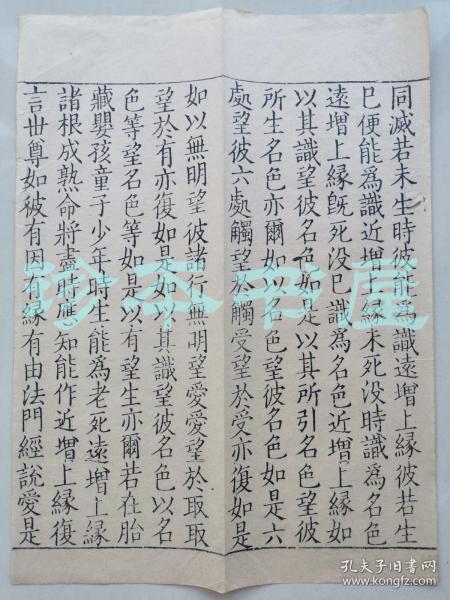 同滅若未生時彼能爲識遠增上緣彼若生
巳便能爲識近增上緣未死没時識爲名色
遠增上緣旣死没巳識爲名色近增上緣如
以其識望彼名色如是以其所引名色望彼
所生名色亦爾如以名色望彼名色如是六
處望彼六處觸望於觸受望於受亦復如是
如以無明望彼諸行無明望愛愛望於取取
望於有亦復如是如以其識望彼名色以名
色等望名色等如是以有望生亦爾若在胎
藏嬰孩童子少年時生能爲老死遠增上緣
諸根成熟命將盡時應知能作近增上緣復
言世尊如彼有因有緣有由法門經說愛是
珍本书屋
孔夫子旧书网
www.kongfz.com